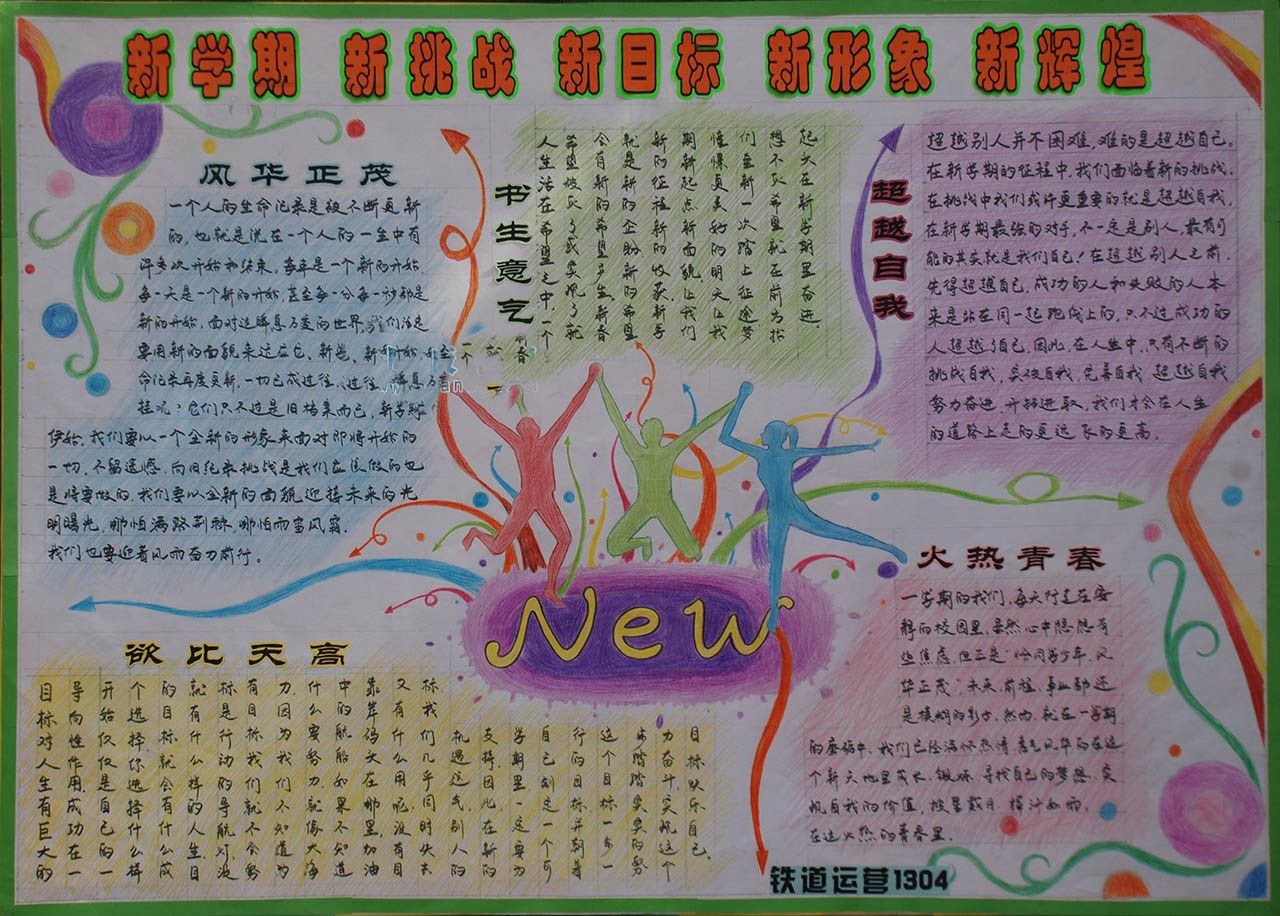 新学期 新挑战 新目标 新形象 新辉煌
风华正茂
一个人的生命记录是被不断更新
的,也就是说在一个人的一生中有
许多次开始和结束。每年是一个新的开始,
每一天是一个新的开始,甚至每一分每一秒都是
新的开始,面对这瞬息万变的世界,我们总是
要用新的面貌来适应它、新学
命记录再度更新,一切已成过往、过往
挂呢?它们只不过是旧档案而已,新学期
伊始,我们要以一个全新的形象来面对即将开始的
一切,不留遗憾,向旧纪录挑战是我们应该做的也
是将要做的,我们要以全新的面貌迎接未来的光
明曙光,哪怕满路荆棘,哪怕雨雪风霜,
我们也要迎着风雨奋力前行。
书生意气
起文在新学期里奋进,
想不灭希望就在前方指
们重新一次踏上征途梦
憧憬更美好的明天让我
期新起点新面貌让我们
新的征程新的收获新学
就是新的企盼新的希望
会有新的希望产生,新春
希望被灭了或实现了就
人生活在希望之中,一个
超越自我
超越别人并不困难,难的是超越自己。
在新学期的征程中,我们面临着新的挑战,
在挑战中我们或许更重要的就是超越自我,
在新学期最强的对手,不一定是别人,最有可
能的其实就是我们自己!在超越别人之前,
先得超越自己,成功的人和失败的人本
来是站在同一起跑线上的,只不过成功的
人超越了自己,因此,在人生中,只有不断的
挑战自我,突破自我,完善自我 超越自我
努力奋进,开拓进取,我们才会在人生
的道路上走的更远飞的更高。
New
火热青春
一学期的我们,每天行走在安
静的校园里,虽然心中隐隐有
些焦虑,但正是“恰同学少年,风
华正茂”,未来、前程、事业都还
是模糊的影子,然而,就在一学期
的磨砺中,我们已经满怀热情,意气风华的在这
个新天地里成长,锻炼、寻找自己的梦想,实
现自我的价值,披星戴月,挥汗如雨,
在这火热的青春里。
欲比天高
目标娱乐自己.
力奋斗,实现这个
步踏踏实实的努
这个目标一步一
行的目标并朝着
自己制定一个可
学期里一定要为
支持,因此在新的
机遇运气,别人的
标,我们几乎同时失去
又有什么用呢,没有目
靠岸码头在哪里,加油
中的航船如果不知道
什么要努力,就像大海
力,因为我们不知道为
有目标我们就不会努
标是行动的导航灯,没
就有什么样的人生,目
的目标就会有什么成
个选择,你选择什么样
开始仅仅是自己的一
导向性作用,成功在一
目标对人生有巨大的
铁道运营1304